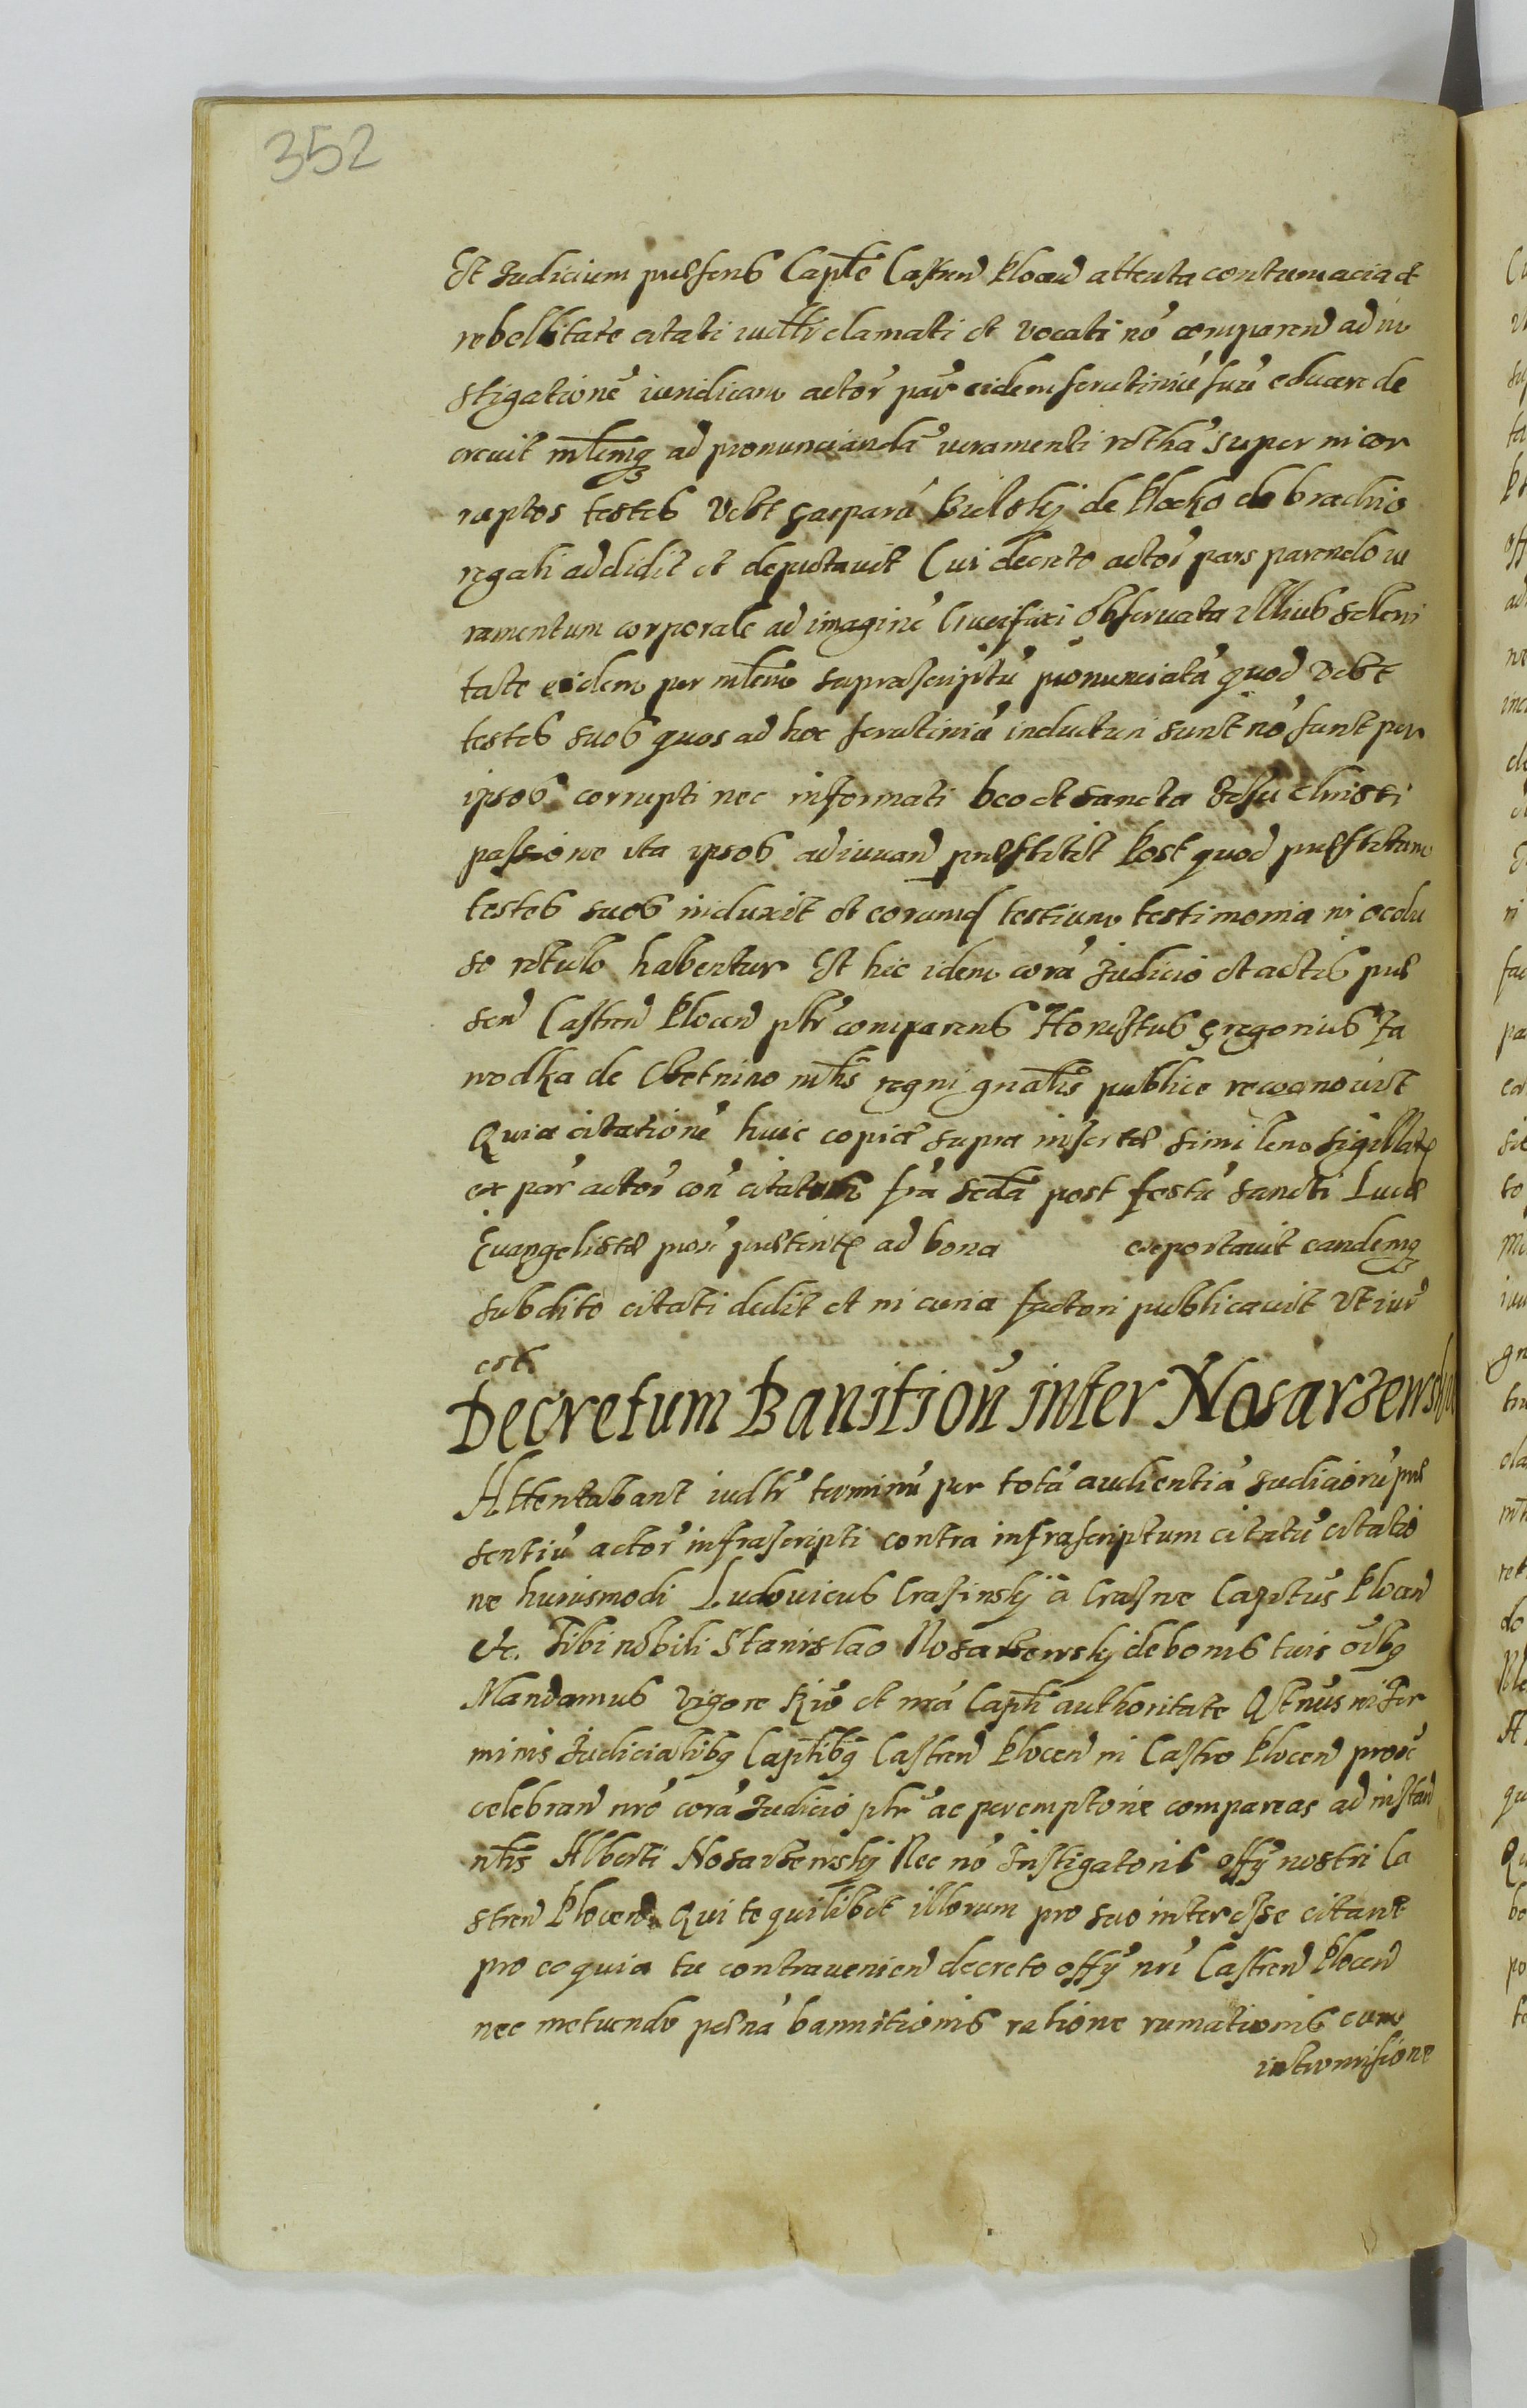 352
Et Judicium præsens Capłe Castren Plocen attenta contumacia et
rebellitate citati iudłr clamati et vocati nō comparen ad in
stigationē iuridicam actor̄ par̄ eidem scrutiniū suū educere de
crevit młemq3 ad pronunciandā iuramenti rothā super incor
ruptos testes vdłt Gasparū Bielskij de Plocko de brachio
regali addidit et deputavit Cui decreto actor̄ pars parendo iu
ramentum corporale ad imaginē Crucifixi observata illius solem
tate eidem per młem suprascriptū pronunciatā quod vdłt
testes suos quos ad hoc scrutiniū inducturi sunt nō sunt per
ipsos corrupti nec informati Deo et sancta Jesu Christi
passione ita ipsos adiuvan præstitit Post quod præstitum
testes suos induxit et eorumd testium testimonia in oculu
so rotulo habentur Et hic idem corā Judicio et actis præ
sen Castren Plocen płr comparens Honestus Gregorius Ja
wodka de młis regni gnałis publice recognovit
Quia citationē huic copiæ supra insertæ similem sigillatā
ex par̄ actor̄ con̄ citatum fr̄a scda post festū Sancti Lucæ
Evangelistæ prox̄ præterit ad bona exportavit eandemq3
subdito citati dedit et in curia factori publicavit Ut iur̄
est
Decretum Banition̄ inter Nosarzewskie
Attentabant iudłr terminū per totā audientiā Judiciorū præ
sentiū actor̄ infrascripti contra infrascriptum citatū citatio
ne huiusmodi Ludovicus Crasinskij à Crasne Capitūs Plocen
etc. Tibi nobili Stanislao Nosarzewskij de bonis tuis oībq3
Mandamus vigore Rio et nrā Capłi authoritate Qtnus in Ter
minis Judicialibq3 Capłibq3 Castren Plocen in Castro Plocen prox̄
celebran nrō corā Judicio płr ac peremptorie compareas ad instan
młis Alberti Nosarzewskij Nec nō Instigatoris offÿ nostri Ca
stren Plocen Qui te quilibet illorum pro suo interesse citant
pro eo quia tu contravenien decreto offÿ nrī Castren Plocen
nec metuendo pænā bannitionis ratione rumationis cum
intromisione